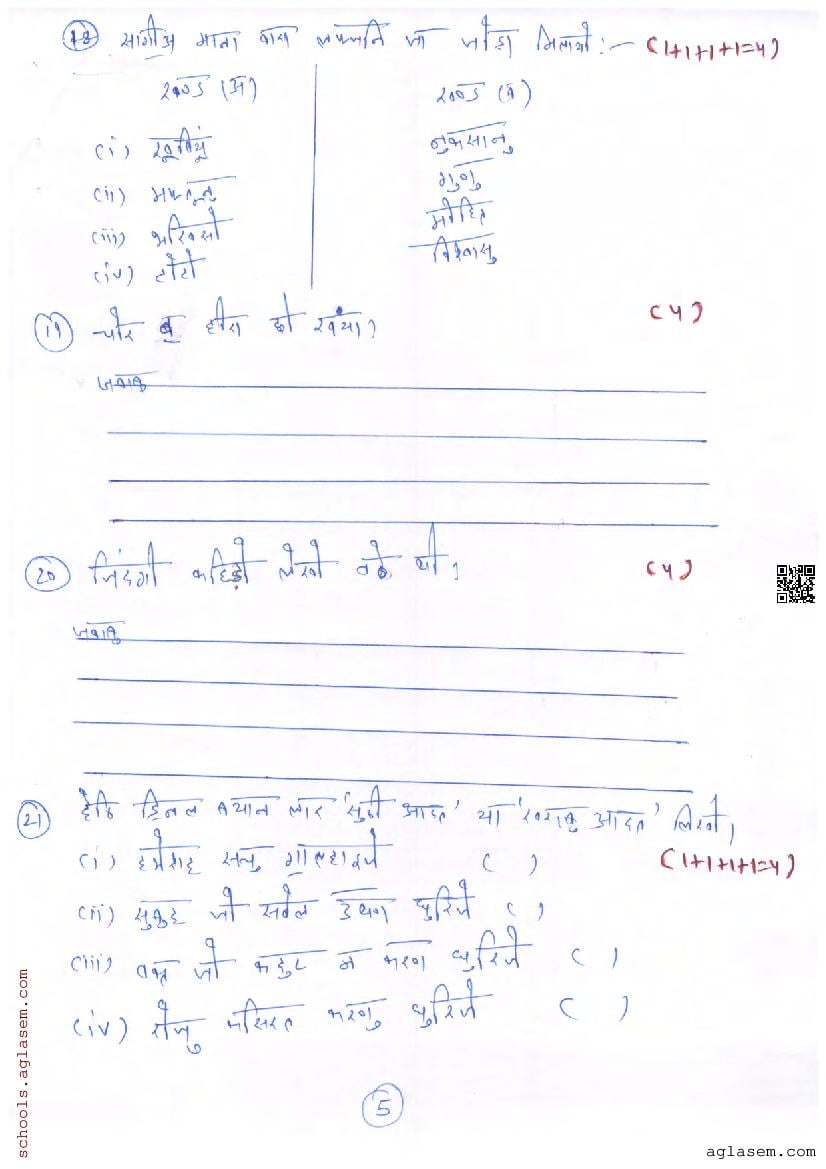 18 सागीअ माना वारा लफ़्ज़नि जा जोड़ा मिलायो :- (1+1+1+1=4)
खण्ड (अ) खण्ड (ब)
(i) खूबियूं नुकसानु
(ii) गुणु
(iii) भरिवसो मोहित
(iv) टोटो विश्वासु
19 चोर बु हीरा छो रखया? (4)
जवाबु
20 ज़िंदगी कहिड़ो लेखो वठे थी? (4)
जवाबु
21 हेठि डिनल बयान लाइ 'सुठी आदत' या 'खराबु आदत' लिखो। (1+1+1+1=4)
(i) हमेशह सचु गाल्हाइजे ( )
(ii) सुबुह जो सवेल उथण घुरिजे ( )
(iii) वक़्त जो कदुर न करण घुरिजे ( )
(iv) रोज़ु कसिरत करणु घुरिजे ( )
5
schools.aglasem.com
aglasem.com